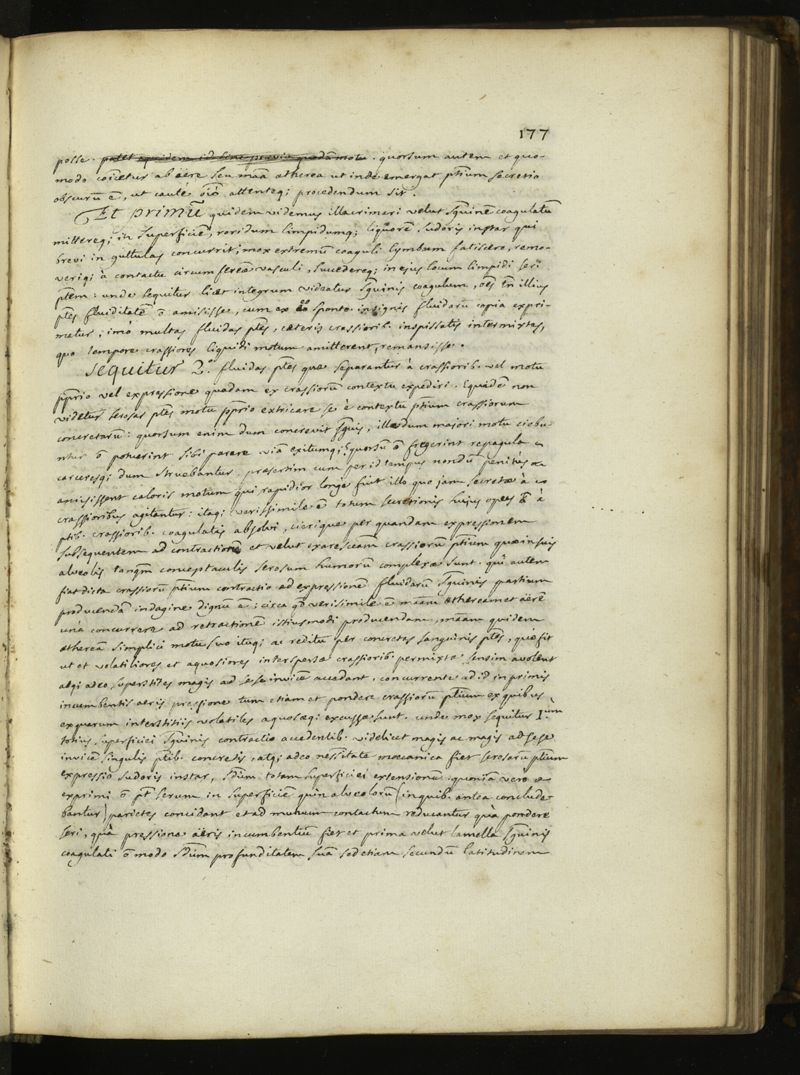 177
posse. patet equidem id sine prævio quodā motu. quorsum autem et quo-
modo coietur ab aëre seu mãa ætherea ut indè emergat ptium secretio
obscurū ē, ut cautè oīo attenteq; procedendum sit.
Et primũ quidem videmus illacrimari velut sguinē coagulatū
mittereq; in superficiē, roridum limpidumq; liquorē, sudoris instar qui
brevi in guttulas concurrit; mox extremū coaguli lymbum fatiscere, remo-
veriq; à contactu circumferēa vasculi, succedereq; in ejus locum limpidi seri
ptem: unde sequitur licet integrum videatur sguinis coagulum, oēs tn illius
ptes fluiditatē ō amisisse, cum ex eo sponte insignis fluidarū copia expri-
metur; imò multas fluidas ptes, cæteris crassiorib. inspissatis intermixtas,
quo tempore crassiores liquidi motum amitterent, remansisse.
Sequitur 2.º fluidas ptes quæ separantur à crassiorib. vel motu
pprio vel expressione quadam ex crassiorū contextu expediri. Equidē non
videtur serosas ptes motu pprio extricare se è contextu ptium crassiorum
concretarū: quorsum enim dum concrevit sguis, illædum majori motu ciebu-
ntur ō potuerint sibi parare viā exitumq; quorsū ō fregerint repagula
carceresq; dum struebantur præsertim cum per id tempus nondū penitùs
amisissent caloris motum qui rapidior longe fuit illo quo jam secretæ à co
crassioribus agitantur: itaq; verissimile ē totum secretionis hujus opus à
ptib. crassiorib. coagulatis absolvi, cierique per quandam expressionem
subsequentem ad contractionē et velut exarescēam crassiorū ptium quæ in suis
alveolis tanqm conceptaculis serosum humorū complexæ sunt. quî autem
fiat dicta crassiorū ptium contractio ad expressionē fluidarū sguinis partium
producendā indagine dignū ē: circa qđ verisimile ē mãam ætheream et aërē
unà concurrere ad retractionē istiusmodi producendam, mãam quidem
ætheream simplici motu suo itaq; ac reditu per concretas sanguinis ptes, quo fit
ut et volatiliores et aquosiores interspersæ crassiorib. permixtæ sensim avolent
atq; adeo superstites magis ad sese invicē accedant, concurrente ad id in primis
incumbentis aëris pressione tum etiam et pondere crassiorū ptium ex quibus
expuarum interstitiis volatiles aquosæq; excussæ sunt, unde mox sequitur I.ùm
totius superficiei sguinis contractio accedentib. videlicet magis ac magis ad sese
invicē singulis ptib. concretis, atq; adeo nessitate mæcanica fiet serosarū ptium
expressio sudoris instar, sdum totam superficiei extensionē. quonia vero
exprimi ō pt serum in superficiē quin alveolorū (in quib. antea conclude-
bantur) parietes concidant et ad mutuum contactum reducantur quâ pondere
seri, quâ pressione aëris incumbentiū fiet et prima velut lamella sguinis
coagulati ō modo sdum profunditatem suā sed etiam secundū latitudinem